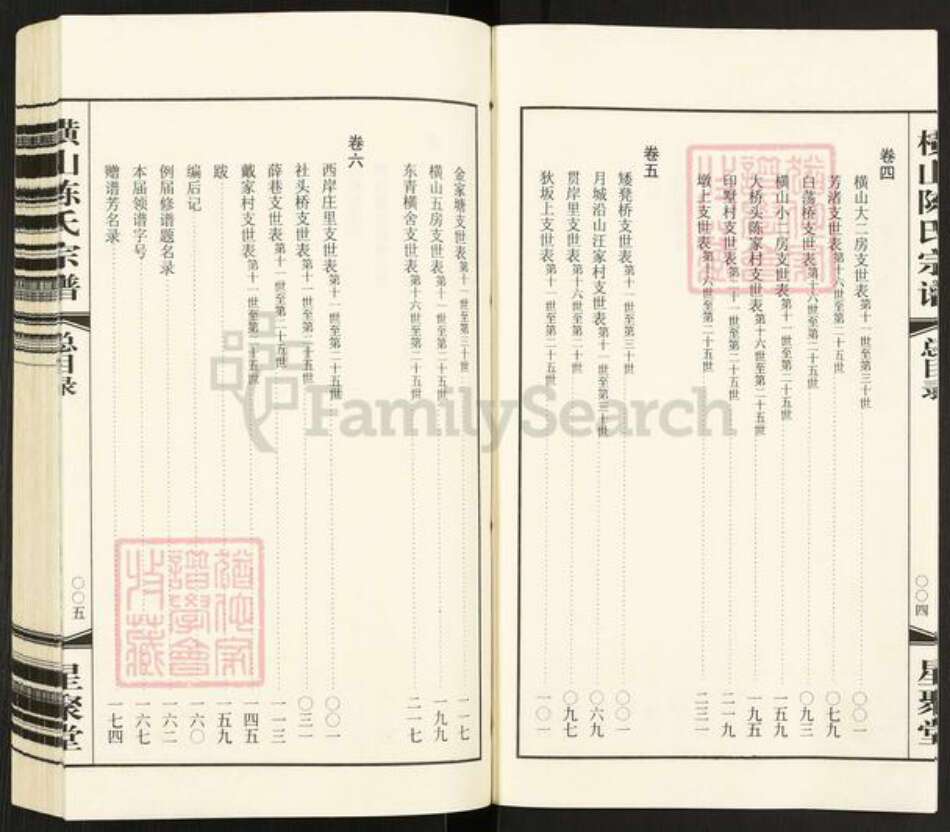 横山陈氏宗谱
总目录
〇〇四
星聚堂
卷四
横山大二房支世表第十一世至第三十世 〇〇一
芳渚支世表第十六世至第二十五世 〇七九
白荡桥支世表第十六世至第二十五世 〇九三
横山小二房支世表第十一世至第二十五世 一五九
大桥头陈家村支世表第十六世至第二十五世 一九五
印墅村支世表第二十一世至第二十五世 二一九
墩上支世表第十六世至第二十五世 二三一
卷五
矮凳桥支世表第十一世至第三十世 〇〇一
月城沿山汪家村支世表第十一世至第三十世 〇六九
贯岸里支世表第十六世至第二十五世 〇九七
狄坂上支世表第十一世至第二十五世 一〇一
金家塘支世表第十一世至第三十世 一一七
横山五房支世表第十一世至第二十五世 一九九
东青横舍支世表第十六世至第二十五世 二一七
卷六
西岸庄里支世表第十一世至第二十五世 〇〇一
社头桥支世表第十一世至第二十五世 〇三一
薛巷支世表第十一世至第二十五世 一一三
戴家村支世表第十一世至第二十五世 一四五
跋 一五九
编后记 一六〇
例届修谱题名录 一六二
本届领谱字号 一六七
赠谱芳名录 一七四
横山陈氏宗谱
总目录
〇〇五
星聚堂
FamilySearch